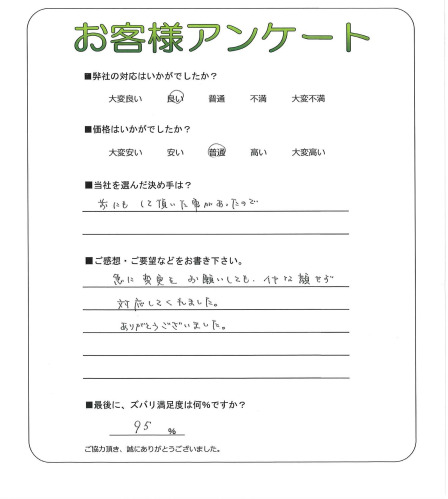 お客様アンケート
■弊社の対応はいかがでしたか？
大変良い 良い 普通 不満 大変不満
■価格はいかがでしたか？
大変安い 安い 普通 高い 大変高い
■当社を選んだ決め手は？
前にも して頂いた事があったので
■ご感想・ご要望などをお書き下さい。
急に変更をお願いしても、イヤな顔せず
対応してくれました。
ありがとうございました。
■最後に、ズバリ満足度は何％ですか？
95 ％
ご協力頂き、誠にありがとうございました。